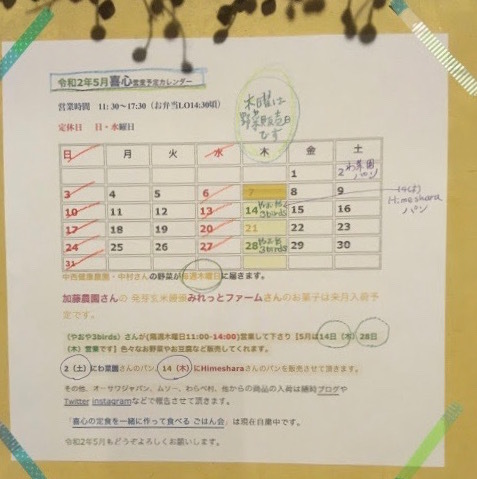 令和2年5月喜心営業予定カレンダー
営業時間 11:30~17:30 (お弁当LO14:30頃)
定休日 日・水曜日
木曜は
野菜販売日
です
日 月 火 水 木 金 土
1 2 わ菜園パン
3 4 5 6 7 8 9
10 11 12 13 14 やおや3birds 15 16
14(木)
Himeshara
パン
17 18 19 20 21 22 23
24 25 26 27 28 やおや3birds 29 30
31
中西健康農園・中村さんの野菜が毎週木曜日に届きます。
加藤農園さんの 発芽玄米饅頭みれっとファームさんのお菓子は来月入荷予
定です。
(やおや3birds)さんが(隔週木曜日11:00-14:00)営業して下さり【5月は14日(木)28日
(木)営業です】色々なお野菜やお豆腐など販売してくれます。
2(土)にわ菜園さんのパン、14(木)にHimesharaさんのパンを販売させて頂きます。
その他、オーサワジャパン、ムソー、わらべ村、他からの商品の入荷は随時ブログや
Twitter instagramなどで報告させて頂きます。
「喜心の定食を一緒に作って食べる ごはん会」は現在自粛中です。
令和2年5月もどうぞよろしくお願いします。